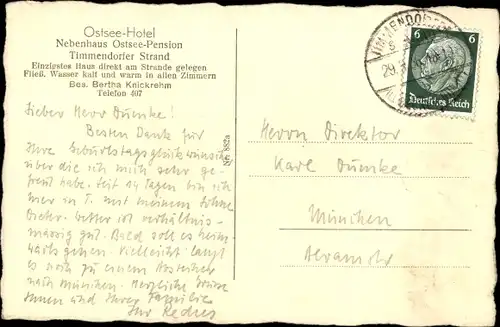 Ostsee-Hotel
Nebenhaus Ostsee-Pension
Timmendorfer Strand
Einzigstes Haus direkt am Strande gelegen
Fließ. Wasser kalt und warm in allen Zimmern
Bes. Bertha Knickrehm
Telefon 407
Lieber Herr Dumke!
Besten Dank für
Ihre Geburtstagsglückwünsche
über die ich mich sehr ge-
freut habe. Seit 14 Tagen bin ich
hier in T. mit meinem Sohne
Dieter. Wetter ist verhältnis-
mässig gut. Bald soll es heim-
wärts gehen. Vielleicht langt
es noch zu einem
nach München. Herzliche Grüsse
Ihnen und Ihrer Familie
Ihr
Nr. 882a
6 6
Deutsches Reich
Herrn Direktor
Karl Dumke
München